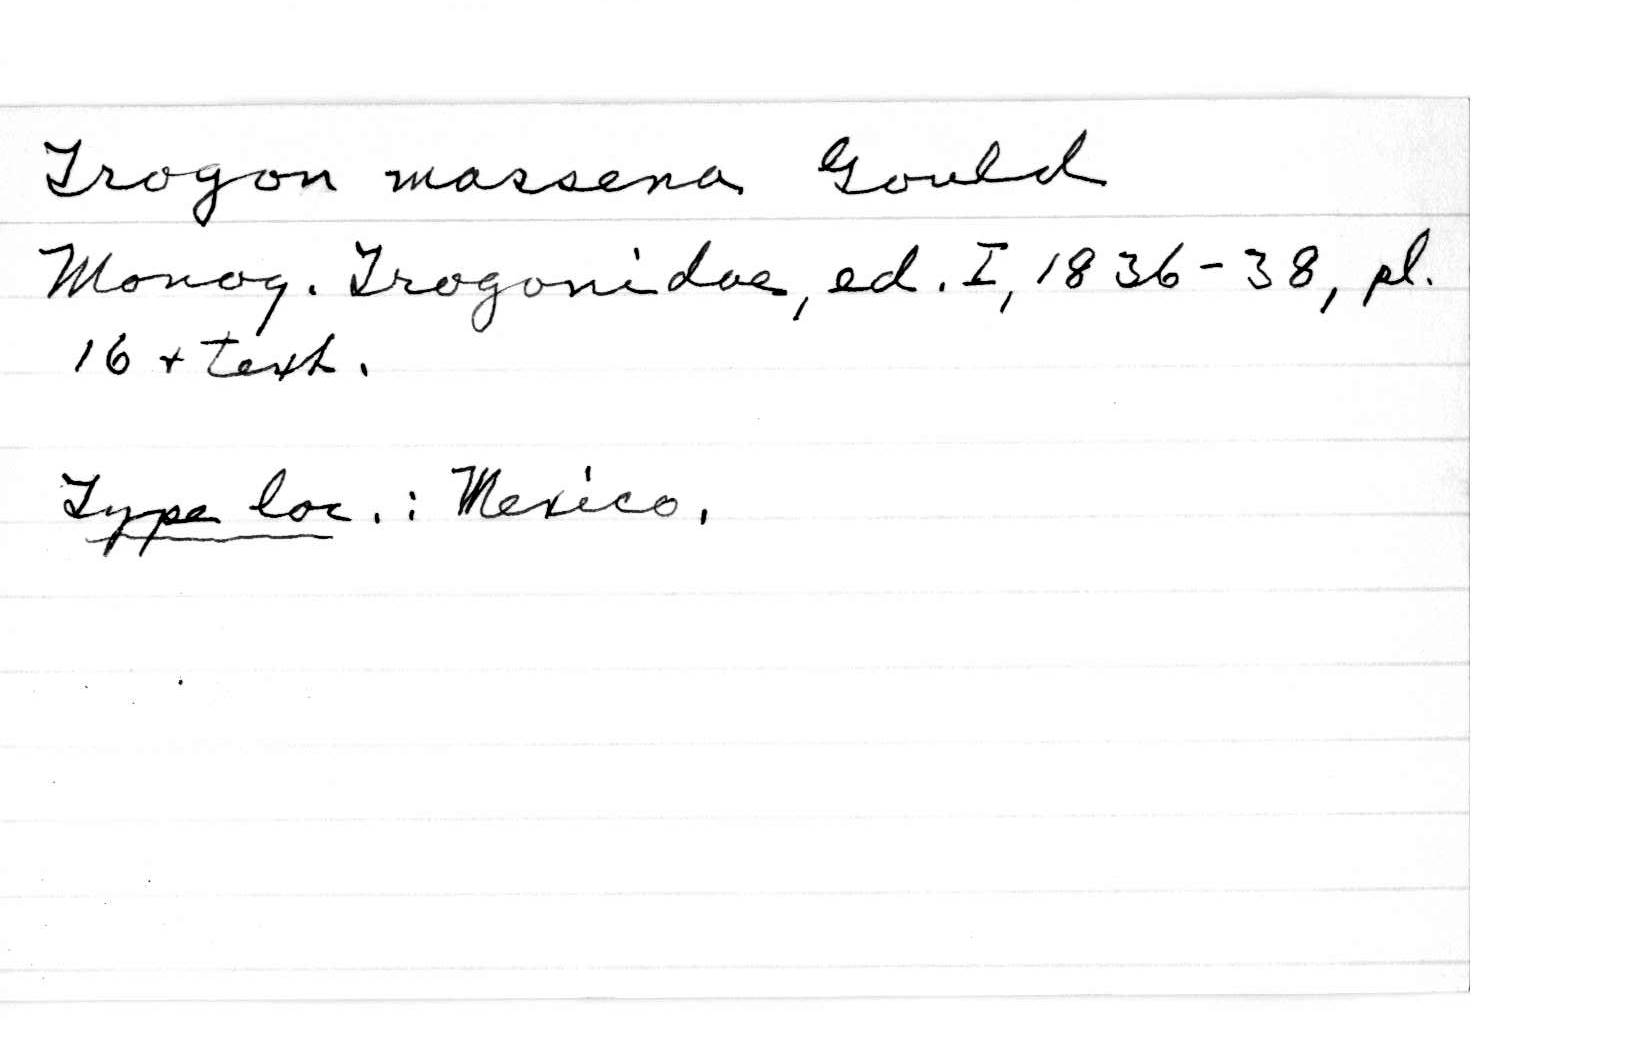 Trogon massena Gould
Monog. Trogonidae, ed. I, 1836-38, pl.
16 + text.
Type loc.: Mexico.